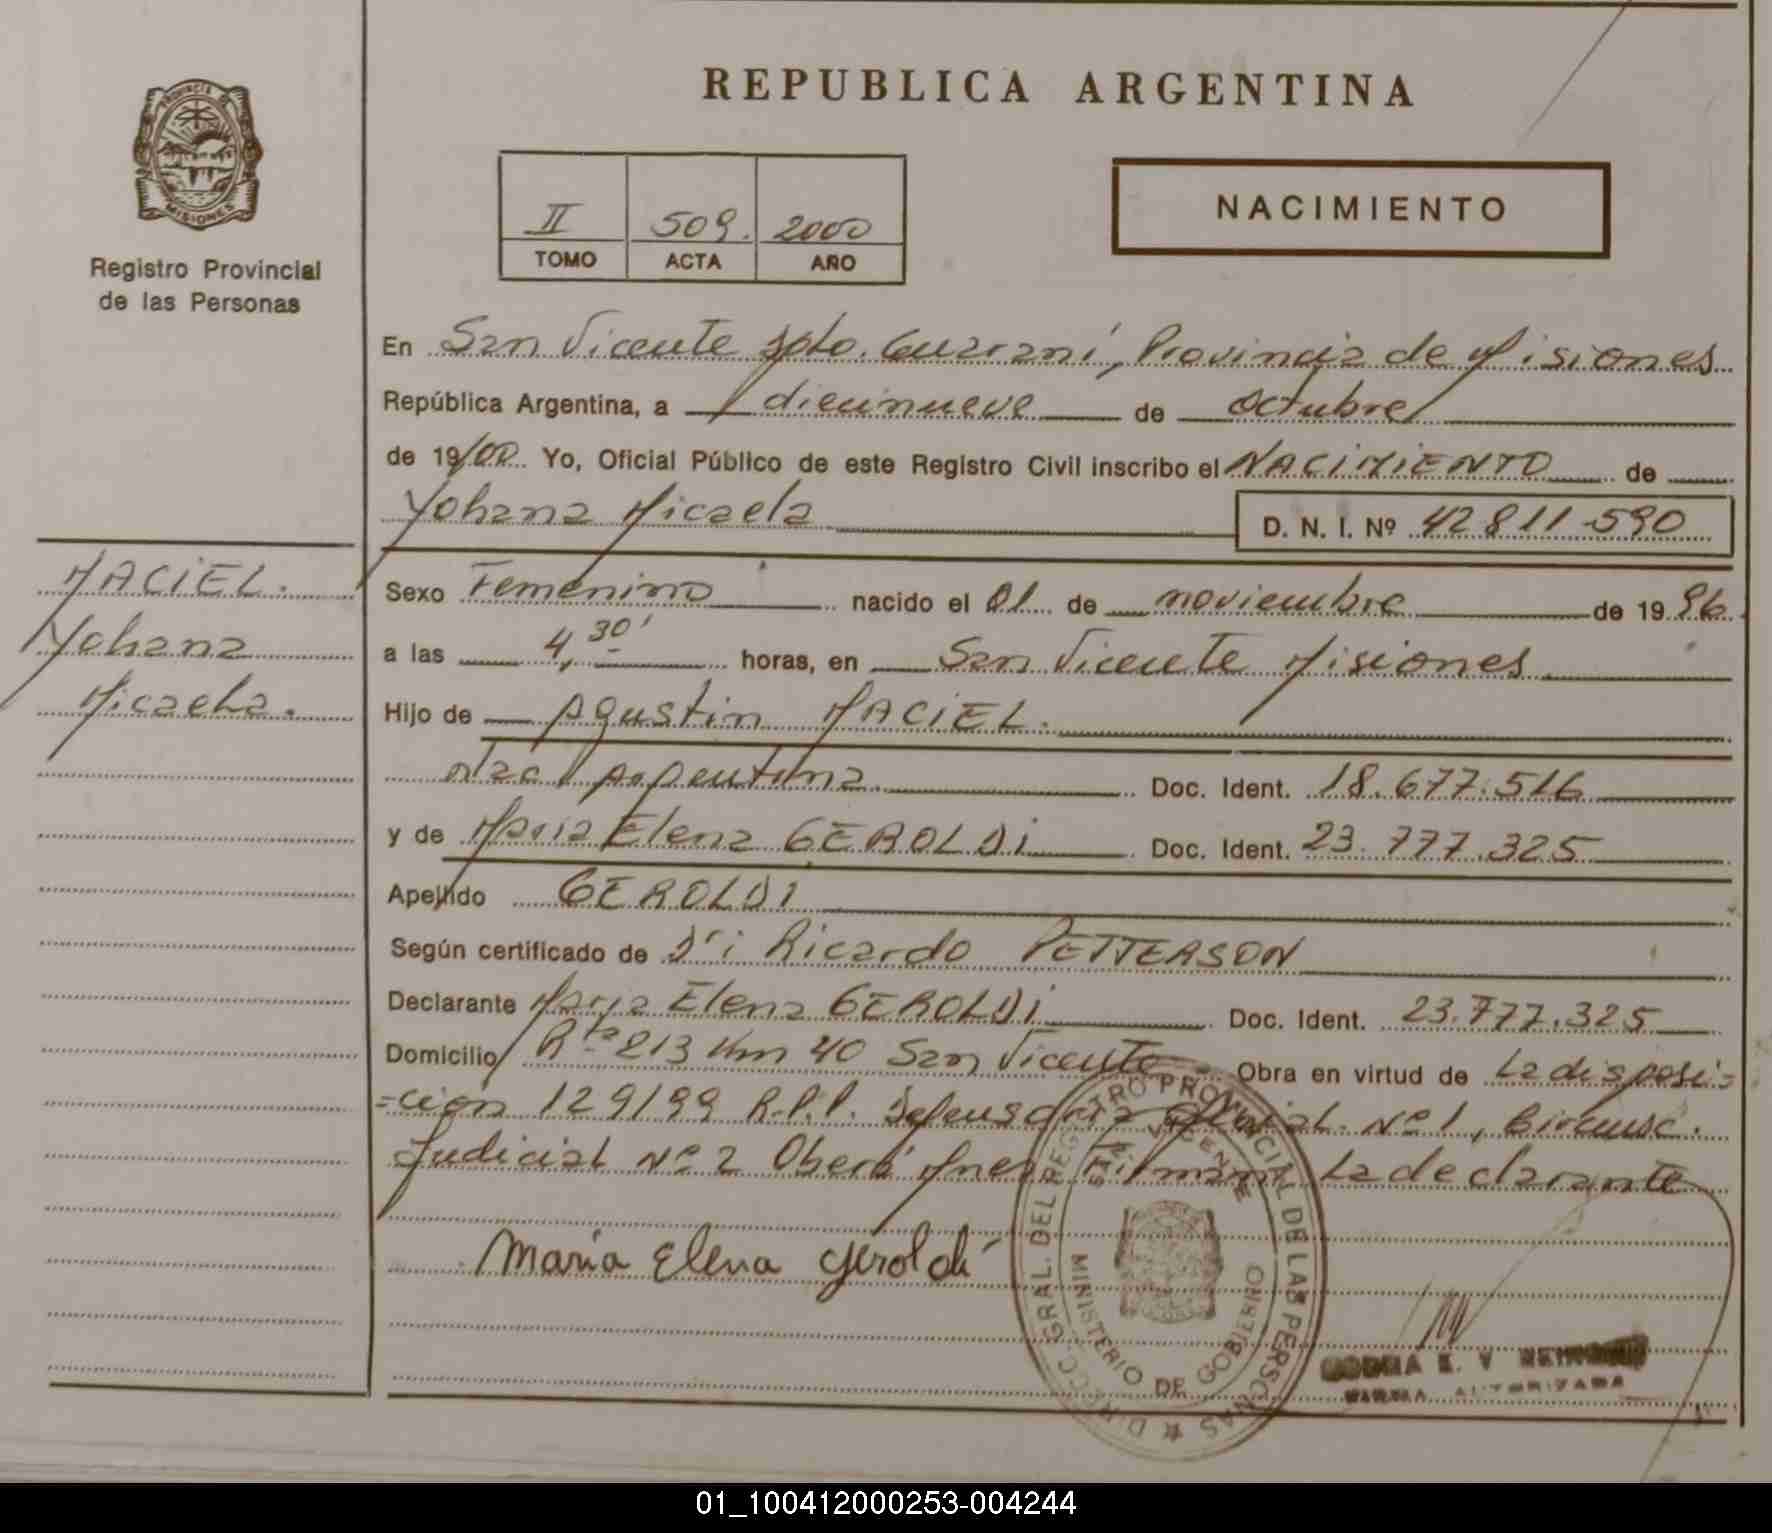 REPUBLICA ARGENTINA
PROVINCIA DE
MISIONES
Registro Provincial
de las Personas
II 509. 2000
TOMO ACTA AÑO
NACIMIENTO
En San Vicente Dpto. Guaraní, Provincia de Misiones
República Argentina, a diecinueve de octubre
de 19/00 Yo, Oficial Público de este Registro Civil inscribo el NACIMIENTO de
Yohana Micaela
D. N. I. Nº 42811.590
MACIEL.
Yohana
Micaela.
Sexo Femenino nacido el 01 de noviembre de 1996.
a las 4,30' horas, en San Vicente Misiones
Hijo de Agustin MACIEL.
Nac Argentina. Doc. Ident. 18.677.516
y de Maria Elena GEROLDI Doc. Ident. 23.777.325
Apellido GEROLDI
Según certificado de Dr: Ricardo PETTERSON
Declarante Maria Elena GEROLDI Doc. Ident. 23.777.325
Domicilio Rta 213 Km 40 San Vicente Obra en virtud de La disposi=
=cion 129/99 R.P.P. Defensoria Oficial Nº1, Circunsc.
Judicial Nº 2 Oberá Mnes. Firmando La declarante
Maria Elena Geroldi
DIRECC. GRAL. DEL REGISTRO PROVINCIAL DE LAS PERSONAS
SAN VICENTE
MINISTERIO DE GOBIERNO
E. V.
FIRMA AUTORIZADA
01_100412000253-004244